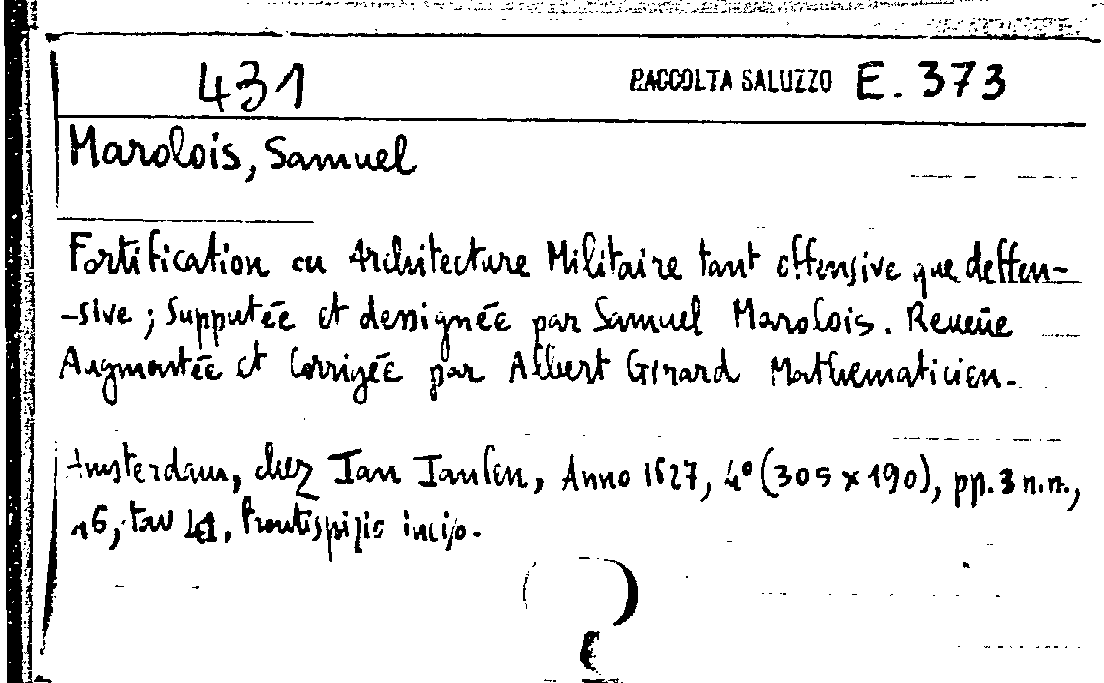 431 RACCOLTA SALUZZO E. 373
Marolois, Samuel
Fortification ou Architecture Militaire tant offensive que deffen-
-sive ; Supputée et dessignée par Samuel Marolois. Reveüe
Augmentée et Corrigée par Albert Girard Mathematicien.
Amsterdam, chez Ian Iansen, Anno 1627, 4° (305 x 190), pp. 3 n.n.,
16, tav 41, frontispizio inciso.